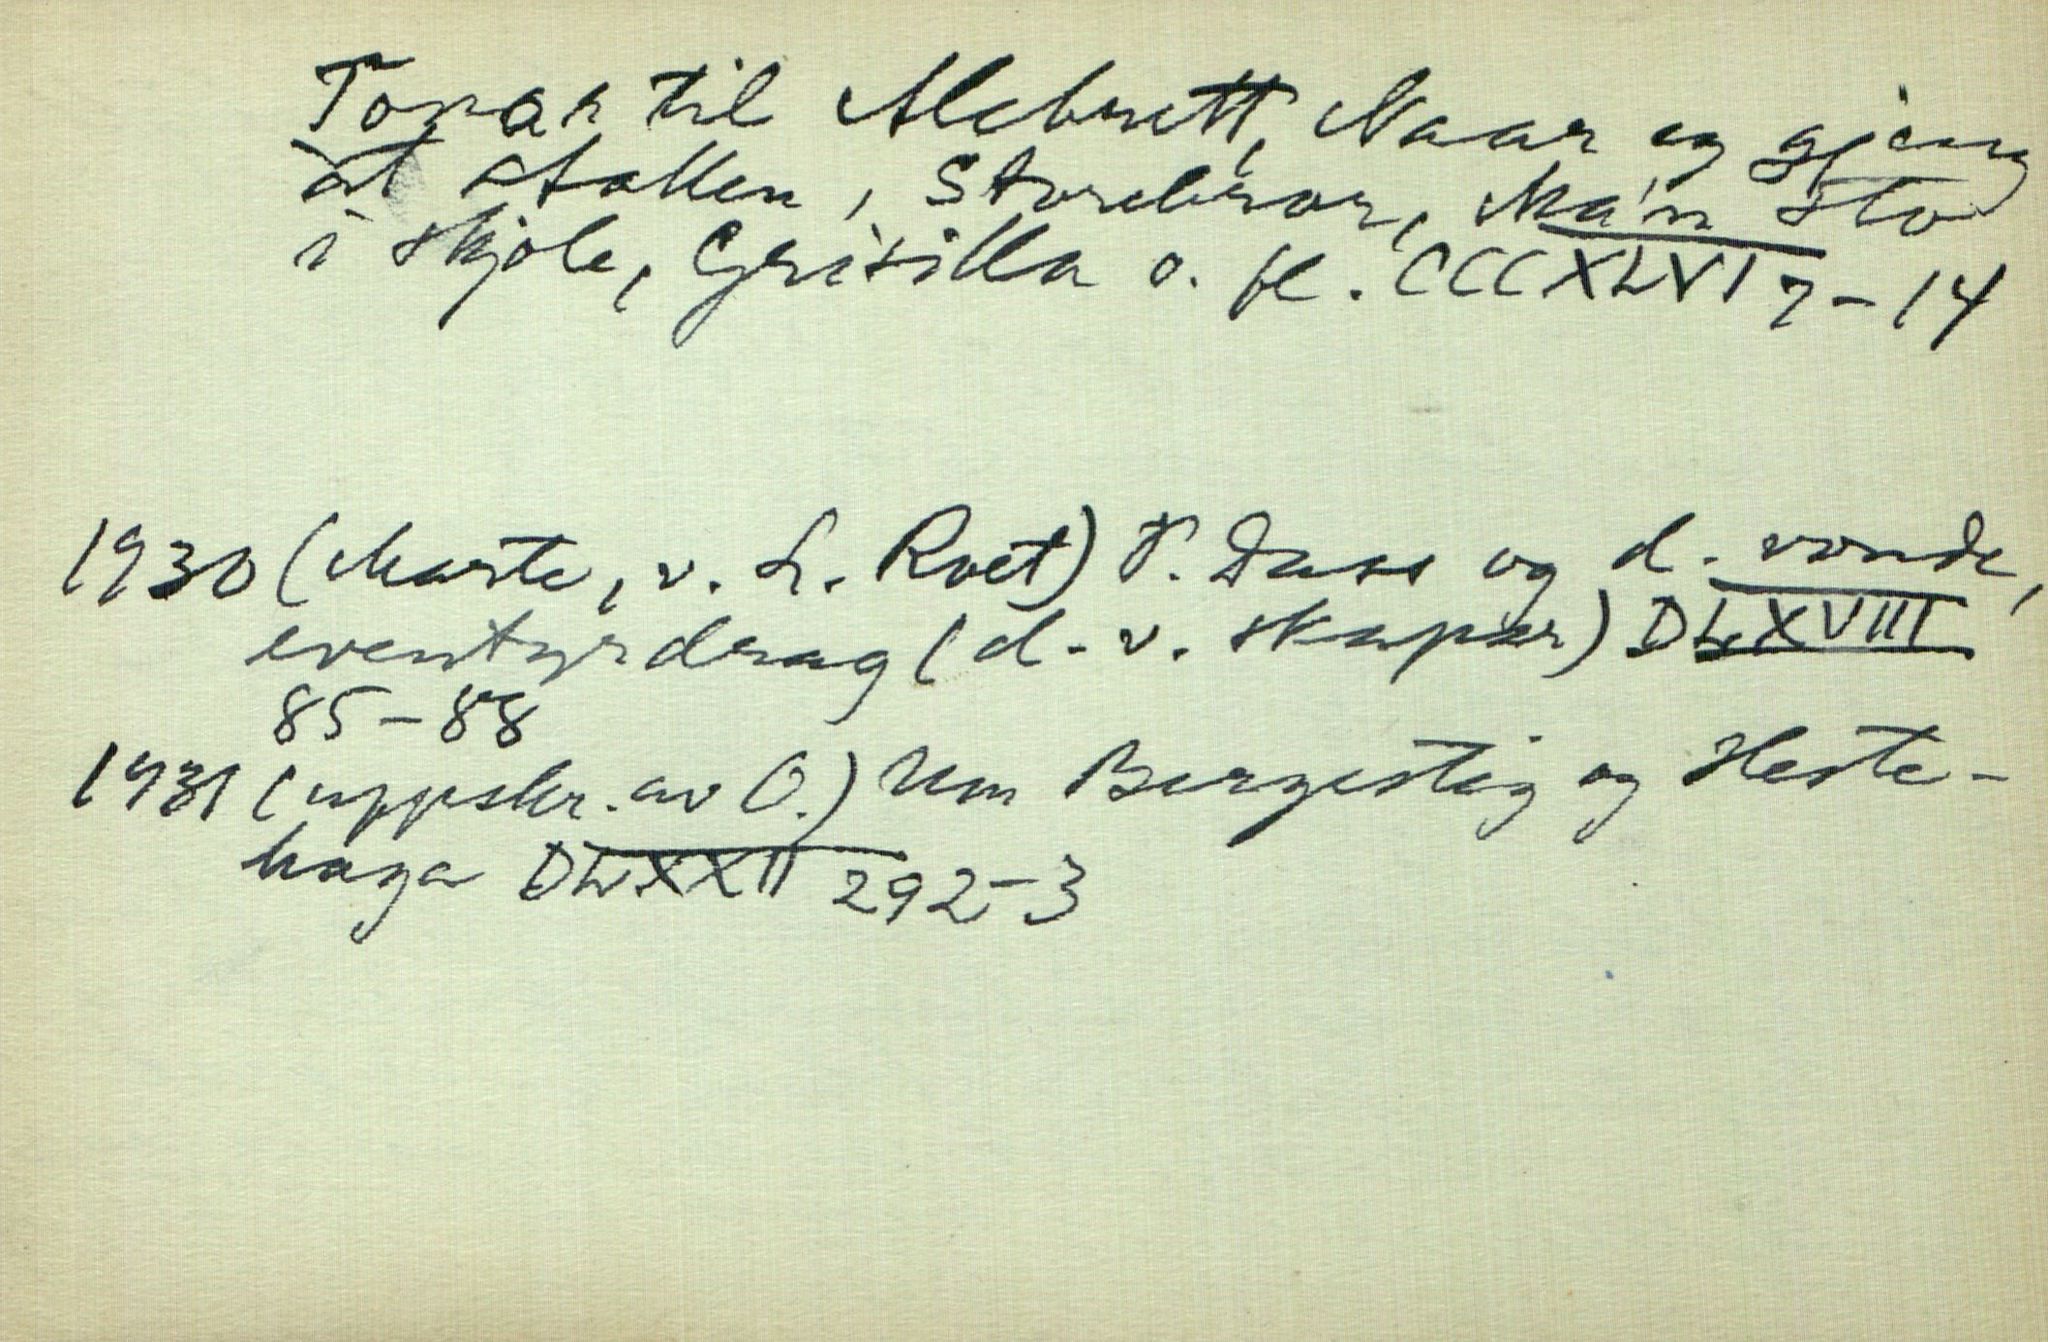 Tonar til Alebrett, Naar eg gjeng
åt stallen, Storebror, Må'n sto
i skjole, Grisilla o. fl. CCCXLVI 7-14
1930 (Marte, v. L. Roet) P. Dass og d. vonde,
eventyrdrag (d. v. skaper) DLXVIII
85-88
1931 (uppskr. av O.) Um Bergestig og Heste-
haga DLXXII 292-3